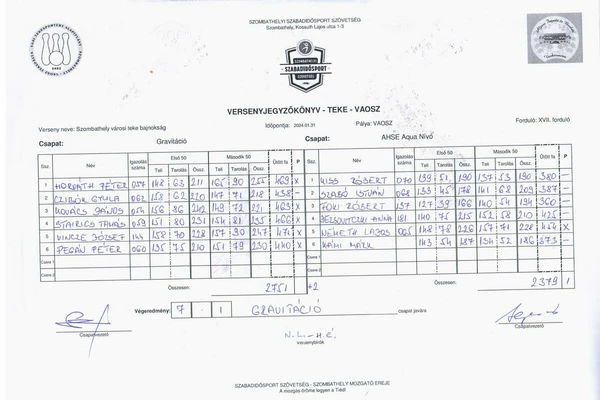 SZOMBATHELYI SZABADIDŐSPORT SZÖVETSÉG
Szombathely, Kossuth Lajos utca 1-3
SZOMBATHELYI
SZABADIDŐSPORT
SZÖVETSÉG
VERSENYJEGYZŐKÖNYV - TEKE - VAOSZ
Időpontja: 2024.01.31 Pálya: VAOSZ
Verseny neve: Szombathely városi teke bajnokság Forduló: XVII. forduló
Csapat: Gravitáció Csapat: AHSE Aqua Nívó
Ssz. Név Igazolás száma Első 50 Második 50 Ütött fa P Ssz. Név Igazolás száma Első 50 Második 50 Ütött fa P
Teli Tarolás Össz. Teli Tarolás Össz. Teli Tarolás Össz. Teli Tarolás Össz.
1 HORVÁTH PÉTER 057 148 63 211 165 90 255 469 X 1 KISS RÓBERT 070 139 51 190 137 53 190 380 —
2 CZIBOR GYULA 062 158 62 220 147 71 218 438 — 2 SZABÓ ISTVÁN 068 133 45 178 141 68 209 387 —
3 KOVÁCS JÁNOS 156 86 242 149 72 221 463 X 3 RÓBERT 137 127 39 166 140 54 194 360 —
4 TAMÁS 059 151 80 231 154 81 235 466 X 4 ANNA 181 140 75 215 152 58 210 425 —
5 VINCZE JÓZSEF 144 158 70 228 157 90 247 471 X 5 NÉMETH LAJOS 065 148 78 226 157 71 228 454 X
6 PEGÁN PÉTER 060 135 75 210 151 79 230 440 X 6 MÁRK 143 54 187 134 52 186 373 —
Csere 1 Csere 1
Csere 2 Csere 2
Összesen: 2751 +2 Összesen: 2379 1
Végeredmény: 7 . 1 GRAVITÁCIÓ csapat javára
Csapatvezető Csapatvezető
N.L.-H.É
Versenybírók
SZABADIDŐSPORT SZÖVETSÉG - SZOMBATHELY MOZGATÓ EREJE
A mozgás öröme legyen a Tiéd!